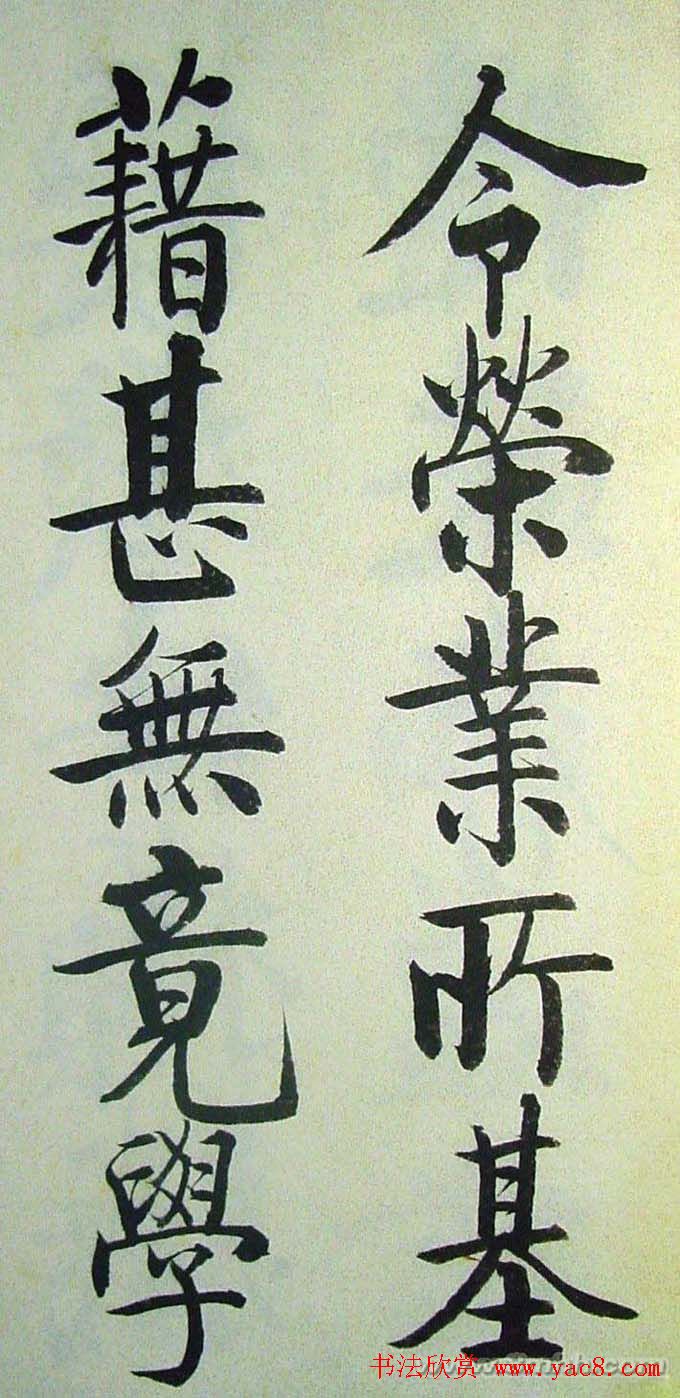 令榮業所基
藉甚無竟學
书法欣赏 www.yac8.com